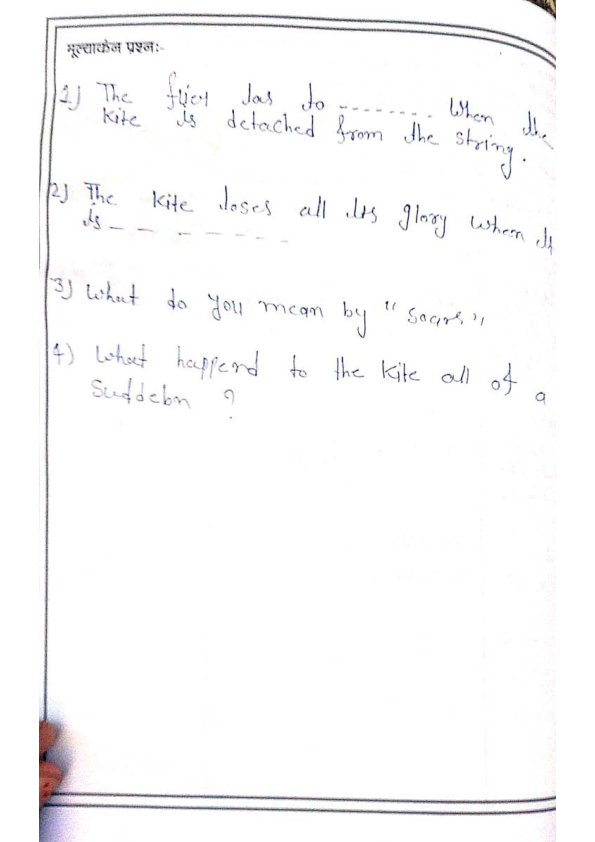 मूल्याकंन प्रश्न:-
1) The flier has to -------- When the
Kite is detached from the string.
2) The Kite loses all its glory when it
is - - - - - - -
3) What do you mean by "Soars"
4) What happend to the Kite all of a
Suddebn ?